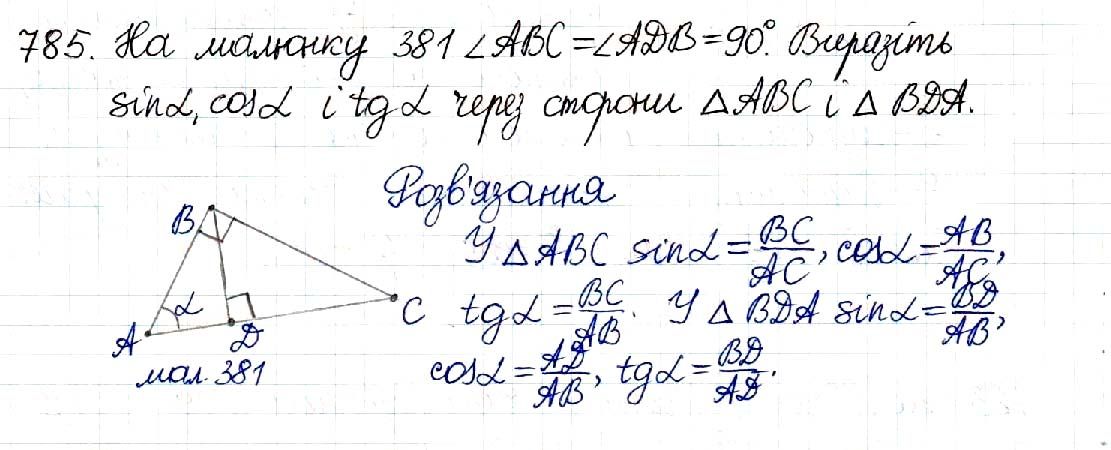 785. На малюнку 381 ∠ABC=∠ADB=90°. Виразіть
sinα, cosα і tgα через сторони △ABC і △ BDA.
Розв'язання
У △ABC sinα=BC/AC, cosα=AB/AC,
tgα=BC/AB. У △BDA sinα=BD/AB,
cosα=AD/AB, tgα=BD/AD.
B
α
A
D
C
мал. 381